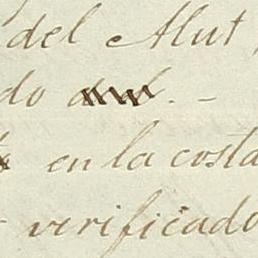 del Alut
do
en la costa
verificado